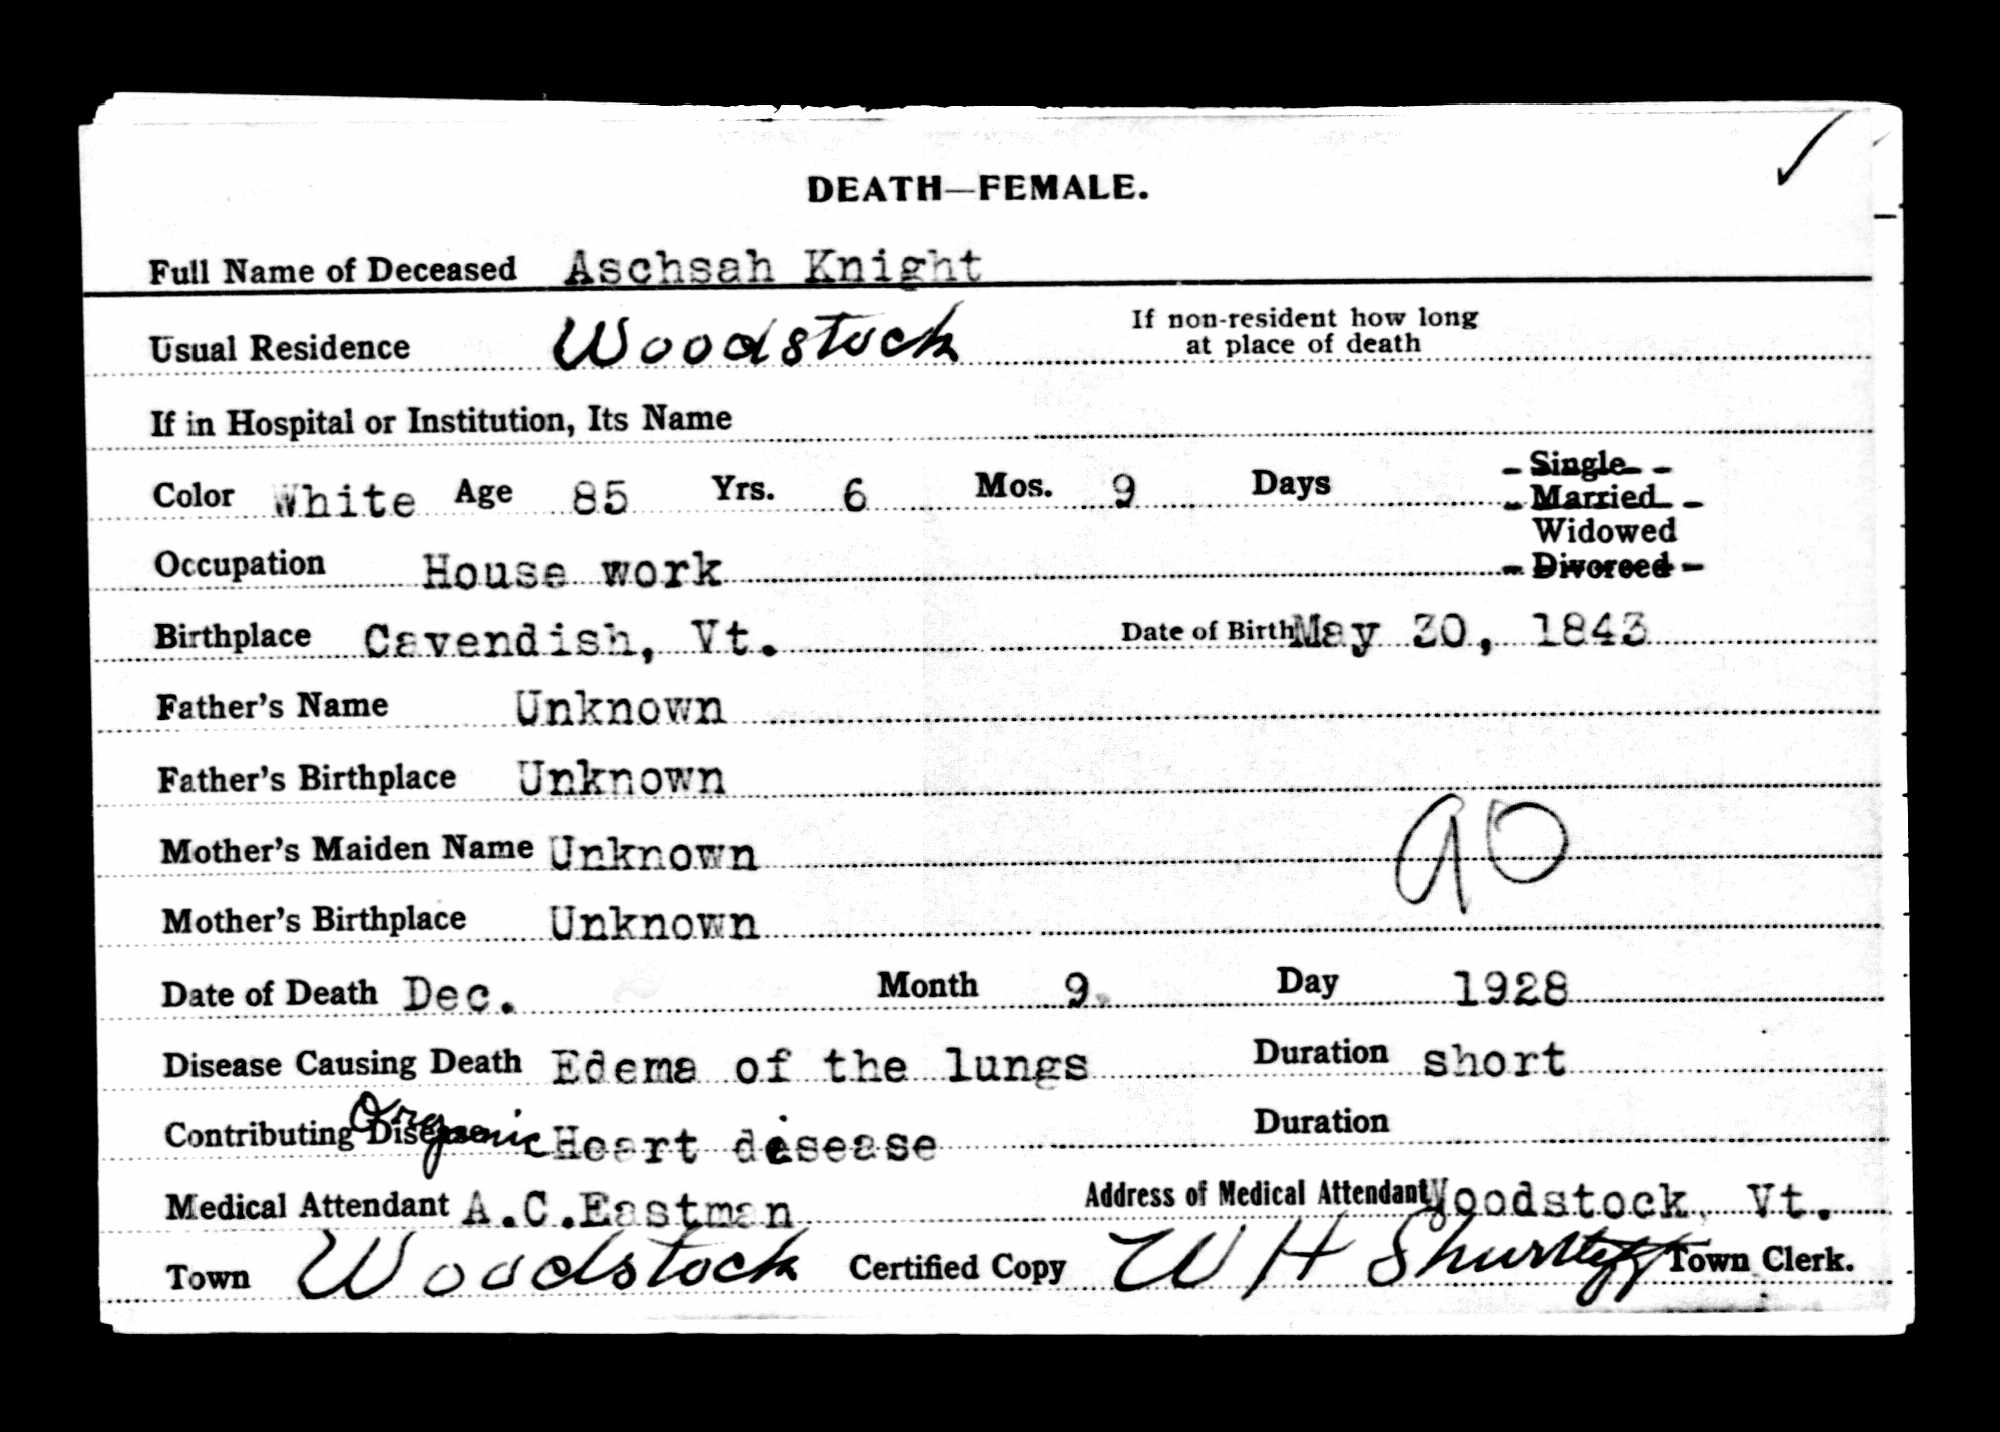 DEATH—FEMALE.
Full Name of Deceased Aschsah Knight
Usual Residence Woodstock If non-resident how long at place of death
If in Hospital or Institution, Its Name
Color White Age 85 Yrs. 6 Mos. 9 Days Single Married Widowed Divorced
Occupation House work
Birthplace Cavendish, Vt. Date of Birth May 30, 1843
Father's Name Unknown
Father's Birthplace Unknown
Mother's Maiden Name Unknown
90
Mother's Birthplace Unknown
Date of Death Dec. Month 9. Day 1928
Disease Causing Death Edema of the lungs Duration short
Contributing Disease Organic Heart disease Duration
Medical Attendant A.C.Eastman Address of Medical Attendant Woodstock, Vt.
Town Woodstock Certified Copy W H Shurtleff Town Clerk.